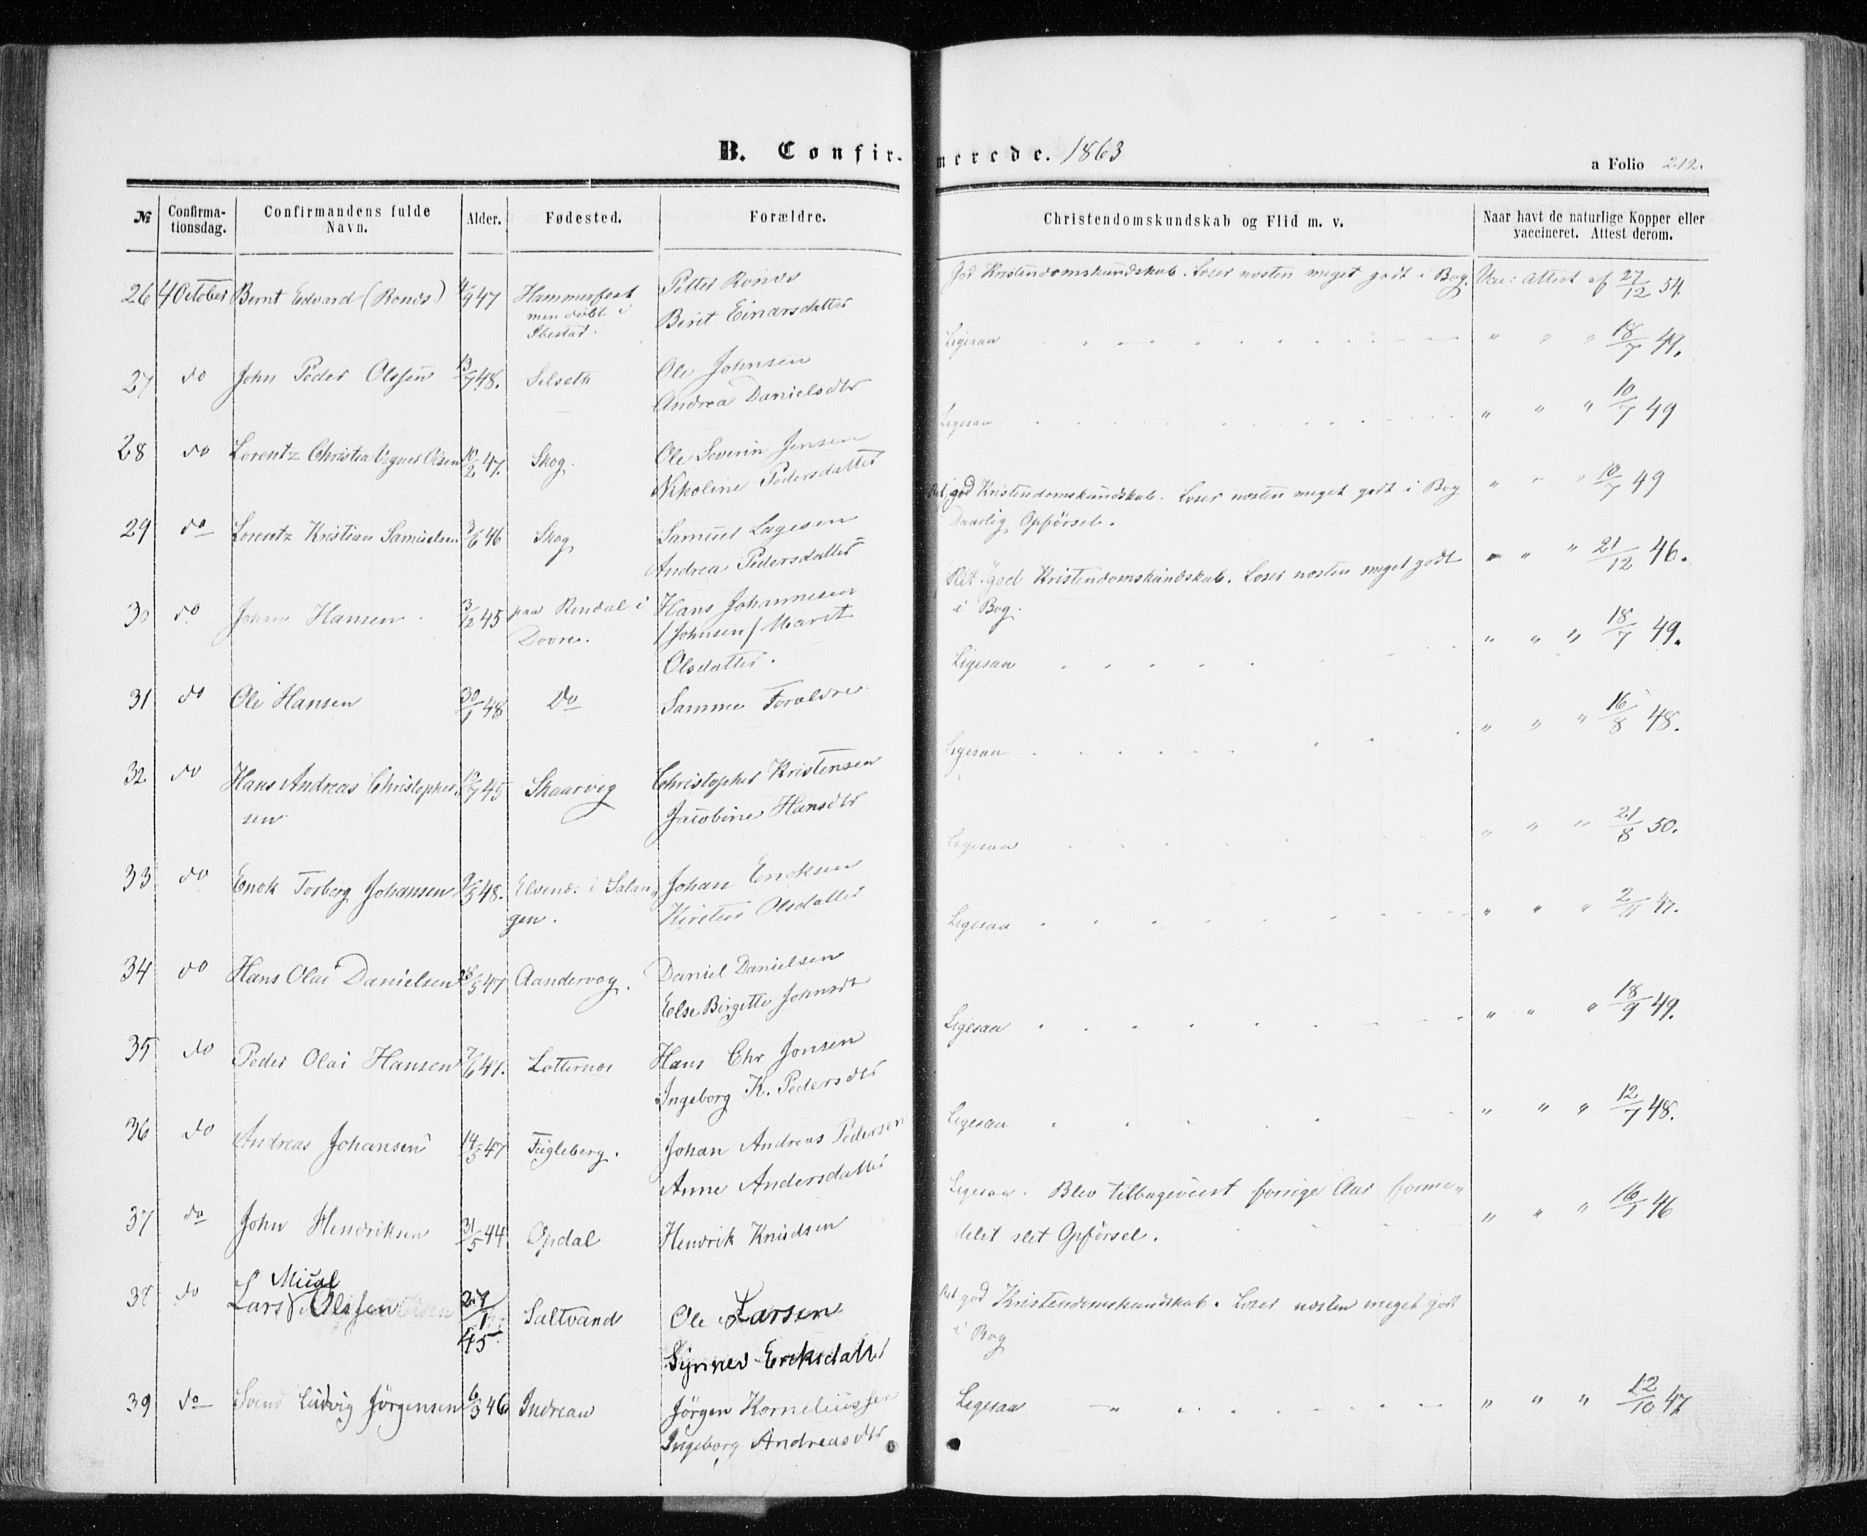 B. Confirmerede. 1863
a Folio 212.
№ Confirmationsdag. Confirmandens fulde Navn. Alder. Fødested. Forældre. Christendomskundskab og Flid m. v. Naar havt de naturlige Kopper eller vaccineret. Attest derom.
26 4 October Bernt Edvard (Ronds) 47 Hammerfest men døbt i Ibestad. Petter Ronds
Berit Einarsdatter
God Kristendomskundskab. Læser næsten meget godt i Bog. Vac: Attest af 27/12 54.
27 do John Peder Olssen 13/7 48. Selseth Ole Johnsen
Andrea Danielsdtr
Ligesaa " " " 18/7 49.
28 do Lorentz Christia Olsen 10/2 47. Skog. Ole Severin Jensen
Nikoline Pedersdatter
Ligesaa " " " 10/7 49
29 do Lorentz Kristian Samuelsen 3/6 46 Skog Samuel Lagesen
Andrea Pedersdatter
Ret god Kristendomskundskab. Læser næsten meget godt i Bog
Daarlig Opførsel.
" " " 10/7 49
30 do Johan Hansen 3/12 45 paa Rendal i Dovre. Hans Johannesen
/Johnsen/ Marit
Olsdatter.
Ret god Kristendomskundskab. Læser næsten meget godt
i Bog.
" " " 21/12 46.
31 do Ole Hansen 30/1 48 Do Samme Forældre
Ligesaa " " " 18/7 49.
32 do Hans Andreas Christophersen 45 Skaarvig Christopher Kristensen
Jacobine Hansdtr
Ligesaa " " " 16/8 48.
33 do Enok Torberg Johansen 9/5 48. Elvenes i Salangen. Johan Enoksen
Kirsten Olsdatter
Ligesaa " " " 21/8 50.
34 do Hans Olai Danielsen 28/5 47 Aandervag. Daniel Danielsen
Else Birgitte Johnsdt
Ligesaa " " " 2/11 47.
35 do Peder Olai Hansen 7/6 47. Lotternes Hans Chr Jonsen
Ingeborg K. Pedersdtr
Ligesaa " " " 18/9 49.
36 do Andreas Johansen 14/5 47 Fugleberg. Johan Andreas Pedersen
Anne Andersdatter
Ligesaa " " " 12/7 48.
37 do John Hendriksen 31/5 44 Opdal Hendrik Knudsen
Ligesaa. Blev tilbageviist forrige Aar forme-
delst slet Opførsel.
" " " 16/7 46
38 do Lars Mical Olsen 27/1 45 Saltvand Ole Larsen
Synnev Eriksdatter
Ret god Kristendomskundskab. Læser næsten meget godt
i Bog
39 do Svend Ludvig Jörgensen 6/3 46 Indreaw Jörgen Korneliussen
Ingeborg Andreasdtr
Ligesaa " " " 12/10 47.